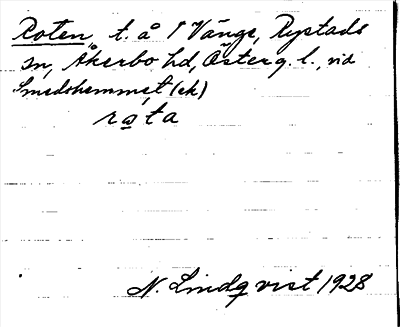 Roten t. å 1 Vänge, Rystads
sn, Åkerbo hd, Österg. l., vid
Smedshemmet (ek)
rota
N. Lindqvist 1928